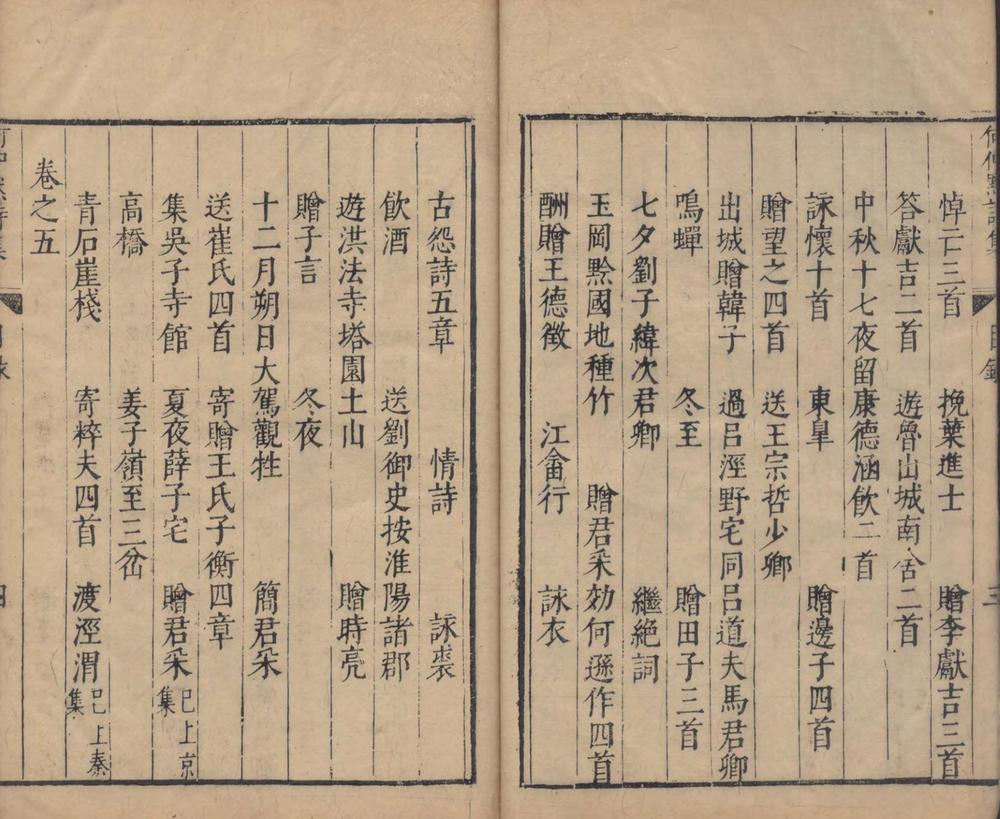 悼亡三首　挽葉進士　贈李獻吉三首
答獻吉二首　遊魯山城南舍二首
中秋十七夜留康德涵飲二首
詠懷十首　東臯　贈邊子四首
贈望之四首　送王宗哲少卿
出城贈韓子　過呂涇野宅同呂道夫馬君卿
鳴蟬　冬至　贈田子三首
七夕劉子緯次君卿　繼絶詞
玉岡黔國地種竹　贈君采効何遜作四首
酬贈王德徵　江畲行　詠衣
古怨詩五章　情詩　詠裘
飲酒　送劉御史按淮陽諸郡
遊洪法寺塔園土山　贈時亮
贈子言　冬夜
十二月朔日大駕觀牲　簡君采
送崔氏四首　寄贈王氏子衡四章
集吳子寺館　夏夜薛子宅　贈君采　巳上京集
高橋　姜子嶺至三岔
青石崖棧　寄粹夫四首　渡涇渭　巳上秦集
卷之五